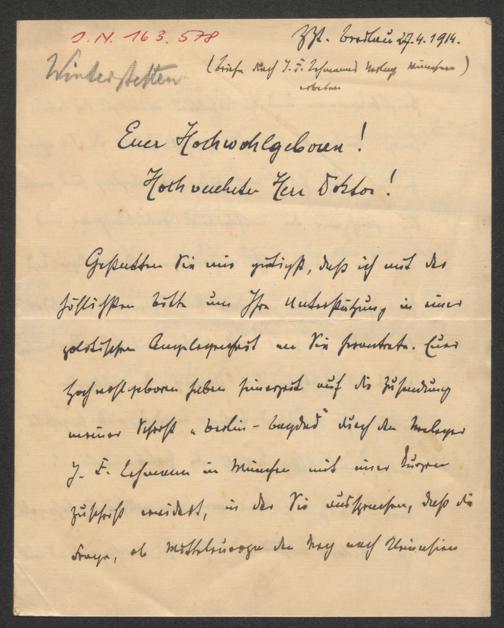 J.N. 163.578
Zzt. Breslau 27.4.1914.
Winterstetten
(Briefe nach J. F. Lehmanns Verlag München)
erbeten
Euer Hochwohlgeboren!
Hochverehrter Herr Doktor!
Gestatten Sie mir gütigst, daß ich mit der
höflichsten Bitte um Ihre Unterstützung in einer
politischen Angelegenheit an Sie herantrete. Euer
Hochwohlgeboren haben seinerzeit auf die Zusendung
meiner Schrift „Berlin - Bagdad" durch den Verleger
J. F. Lehmann in München mit einer kurzen
Zuschrift erwidert, in der Sie aussprachen, daß die
Frage, ob Mitteleuropa den Weg nach Kleinasien